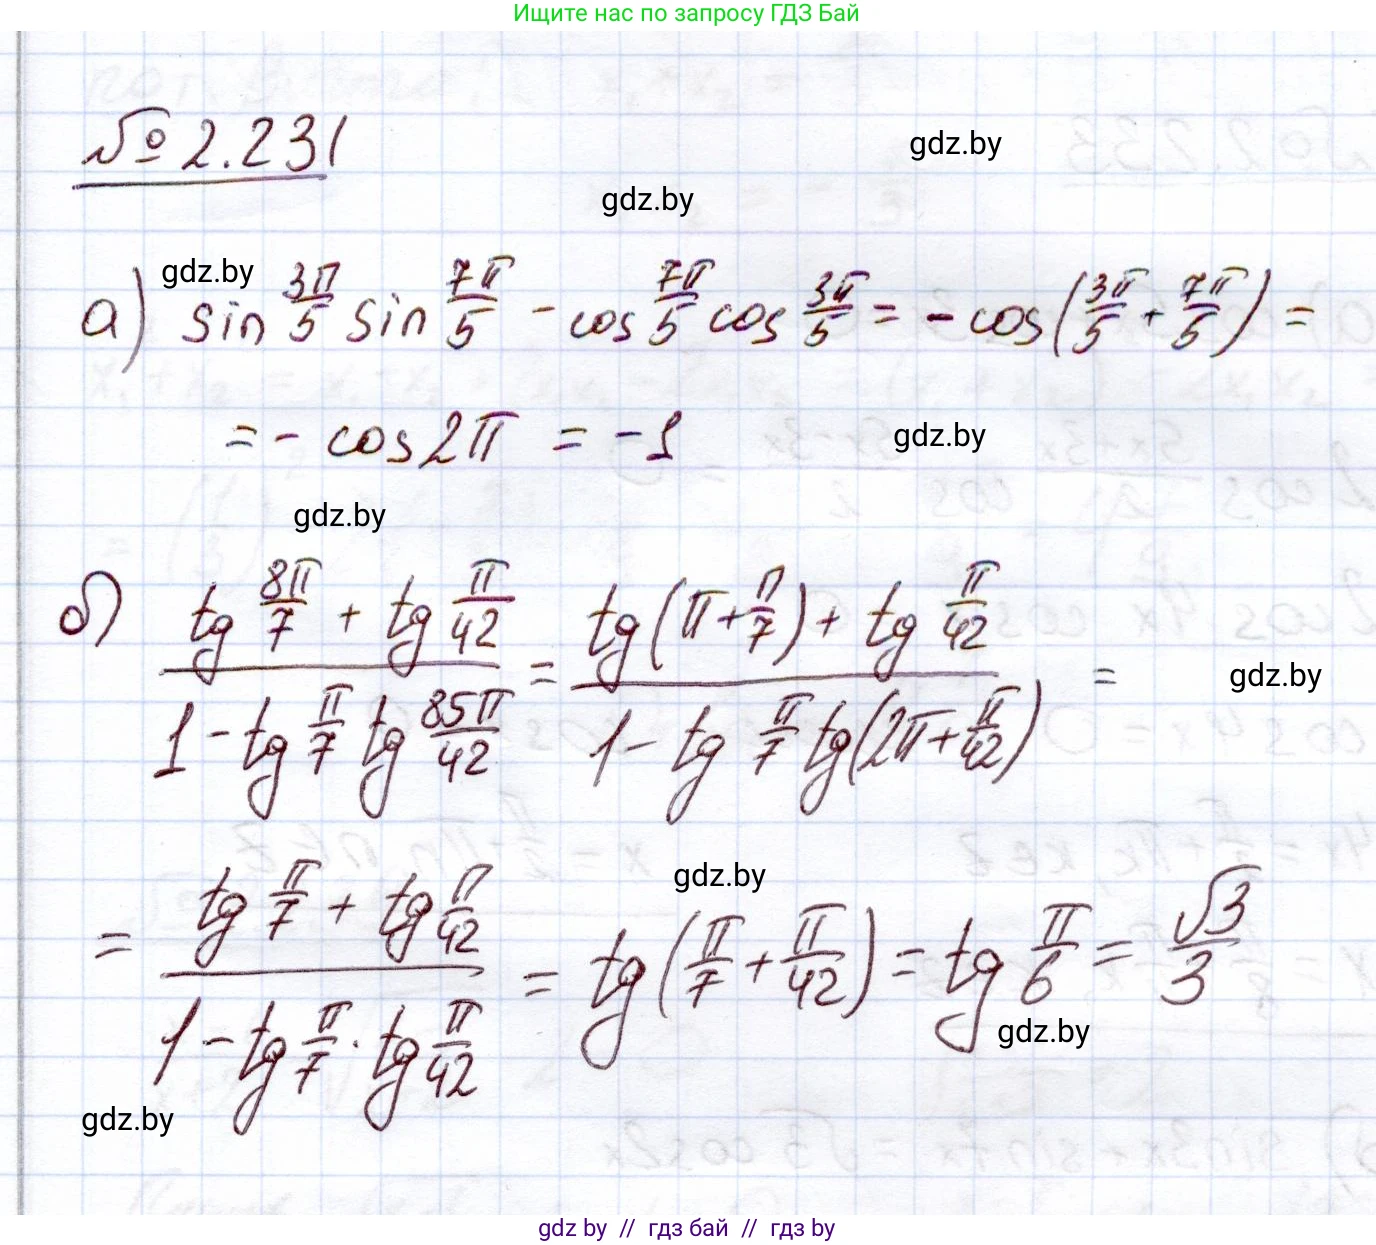 Ищите нас по запросу ГДЗ Бай
№ 2.231
gdz.by
gdz.by
gdz.by
а) sin 3π/5 sin 7π/5 - cos 7π/5 cos 3π/5 = - cos(3π/5 + 7π/5) =
= - cos 2π = -1
gdz.by
gdz.by
б) (tg 8π/7 + tg π/42)/(1 - tg π/7 tg 85π/42) = (tg(π + π/7) + tg π/42)/(1 - tg π/7 tg(2π + π/42)) =
gdz.by
gdz.by
= (tg π/7 + tg π/42)/(1 - tg π/7 · tg π/42) = tg(π/7 + π/42) = tg π/6 = √3/3
gdz.by
gdz.by
gdz by // гдз бай // гдз by